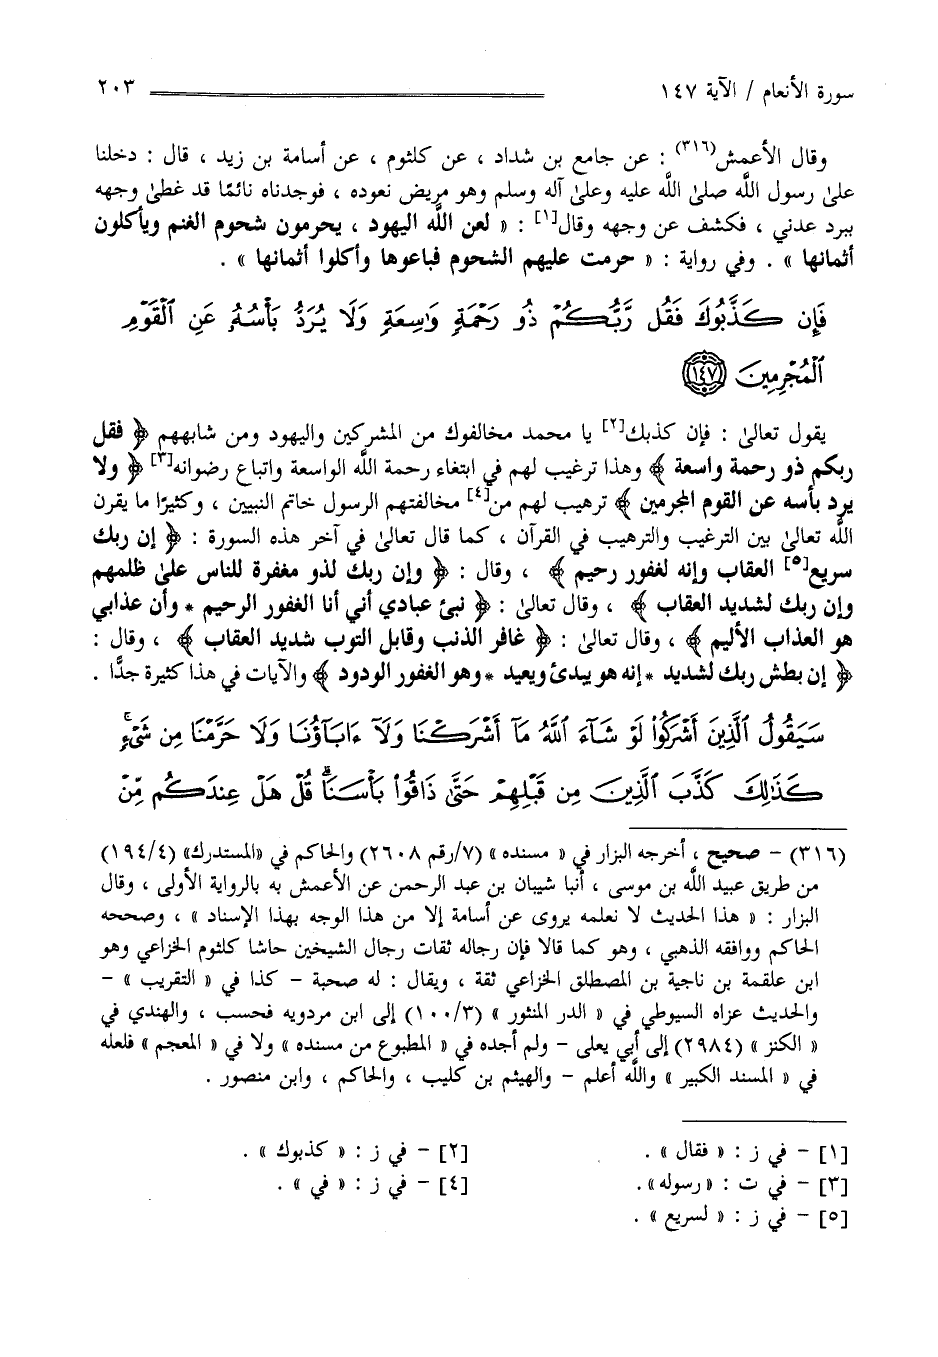 سورة الأنعام / الآية ١٤٧ ٢٠٣
وقال الأعمش(٣١٦) : عن جامع بن شداد ، عن كلثوم ، عن أسامة بن زيد ، قال : دخلنا
علىٰ رسول اللَّه صلىٰ اللَّه عليه وعلىٰ آله وسلم وهو مريض نعوده ، فوجدناه نائمًا قد غطىٰ وجهه
ببرد عدني ، فكشف عن وجهه وقال[١] : « لعن اللَّه اليهود ، يحرمون شحوم الغنم ويأكلون
أثمانها » . وفي رواية : « حرمت عليهم الشحوم فباعوها وأكلوا أثمانها » .
فَإِن كَذَّبُوكَ فَقُل رَّبُّكُمْ ذُو رَحْمَةٍ وَٰسِعَةٍ وَلَا يُرَدُّ بَأْسُهُۥ عَنِ ٱلْقَوْمِ
ٱلْمُجْرِمِينَ ١٤٧
يقول تعالىٰ : فإن كذبك[٢] يا محمد مخالفوك من المشركين واليهود ومن شابههم ﴿ فقل
ربكم ذو رحمة واسعة ﴾ وهذا ترغيب لهم في ابتغاء رحمة اللَّه الواسعة واتباع رضوانه[٣] ﴿ ولا
يرد بأسه عن القوم المجرمين ﴾ ترهيب لهم من[٤] مخالفتهم الرسول خاتم النبيين ، وكثيرًا ما يقرن
اللَّه تعالىٰ بين الترغيب والترهيب في القرآن ، كما قال تعالىٰ في آخر هذه السورة : ﴿ إن ربك
سريع[٥] العقاب وإنه لغفور رحيم ﴾ ، وقال : ﴿ وإن ربك لذو مغفرة للناس علىٰ ظلمهم
وإن ربك لشديد العقاب ﴾ ، وقال تعالىٰ : ﴿ نبئ عبادي أني أنا الغفور الرحيم * وأن عذابي
هو العذاب الأليم ﴾ ، وقال تعالىٰ : ﴿ غافر الذنب وقابل التوب شديد العقاب ﴾ ، وقال :
﴿ إن بطش ربك لشديد * إنه هو يبدئ ويعيد * وهو الغفور الودود ﴾ والآيات في هذا كثيرة جدًّا .
سَيَقُولُ ٱلَّذِينَ أَشْرَكُوا۟ لَوْ شَآءَ ٱللَّهُ مَآ أَشْرَكْنَا وَلَآ ءَابَآؤُنَا وَلَا حَرَّمْنَا مِن شَىْءٍۚ
كَذَٰلِكَ كَذَّبَ ٱلَّذِينَ مِن قَبْلِهِمْ حَتَّىٰ ذَاقُوا۟ بَأْسَنَاۗ قُلْ هَلْ عِندَكُم مِّنْ
(٣١٦) – صحيح ، أخرجه البزار في « مسنده » (٧/رقم ٢٦٠٨) والحاكم في «المستدرك» (١٩٤/٤)
من طريق عبيد اللَّه بن موسى ، أنبا شيبان بن عبد الرحمن عن الأعمش به بالرواية الأولى ، وقال
البزار : « هذا الحديث لا نعلمه يروى عن أسامة إلا من هذا الوجه بهذا الإسناد » ، وصححه
الحاكم ووافقه الذهبي ، وهو كما قالا فإن رجاله ثقات رجال الشيخين حاشا كلثوم الخزاعي وهو
ابن علقمة بن ناجية بن المصطلق الخزاعي ثقة ، ويقال : له صحبة – كذا في « التقريب » –
والحديث عزاه السيوطي في « الدر المنثور » (١٠٠/٣) إلى ابن مردويه فحسب ، والهندي في
« الكنز » (٢٩٨٤) إلى أبي يعلى – ولم أجده في « المطبوع من مسنده » ولا في « المعجم » فلعله
في « المسند الكبير » واللَّه أعلم – والهيثم بن كليب ، والحاكم ، وابن منصور .
[١] – في ز : « فقال » . [٢] – في ز : « كذبوك » .
[٣] – في ت : «رسوله». [٤] – في ز : « في » .
[٥] – في ز : « لسريع » .